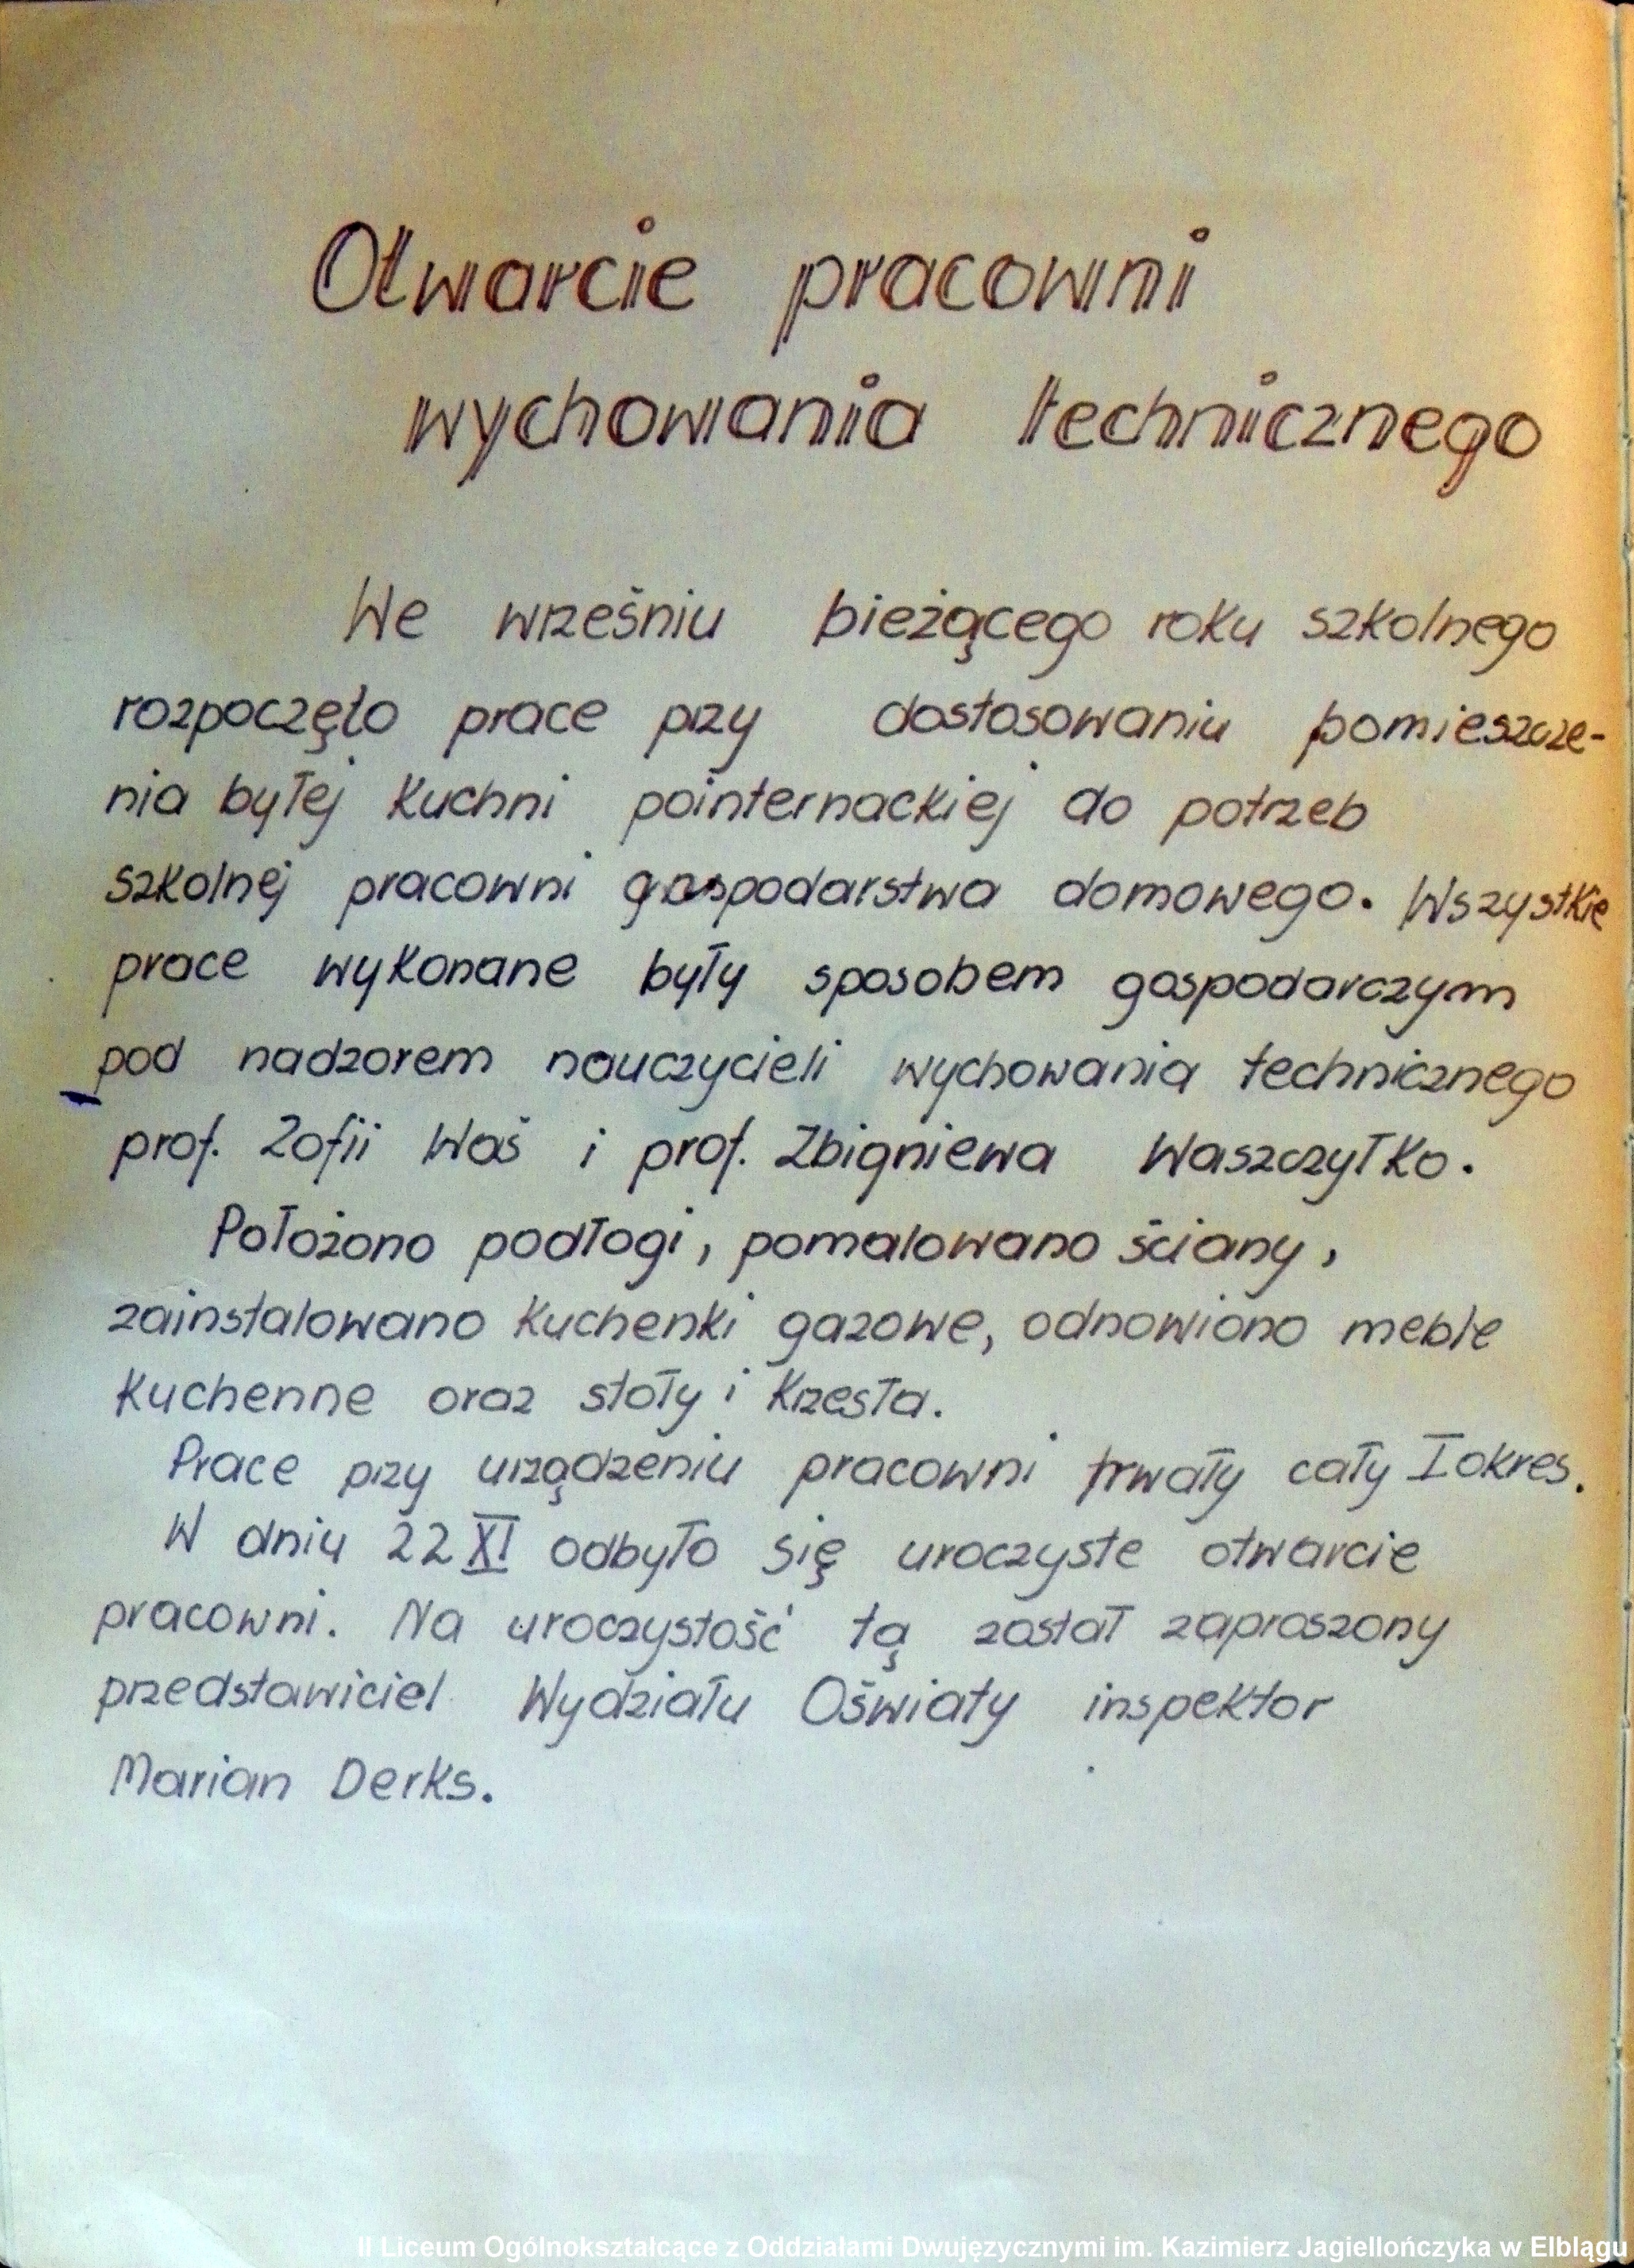 Otwarcie pracowni
wychowania technicznego
We wrześniu bieżącego roku szkolnego
rozpoczęto prace przy dostosowaniu pomieszcze-
nia byłej kuchni pointernackiej do potrzeb
szkolnej pracowni gospodarstwa domowego. Wszystkie
prace wykonane były sposobem gospodarczym
pod nadzorem nauczycieli wychowania technicznego
prof. Zofii Waś i prof. Zbigniewa Waszczyłko.
Położono podłogi, pomalowano ściany,
zainstalowano kuchenki gazowe, odnowiono meble
kuchenne oraz stoły i krzesła.
Prace przy urządzeniu pracowni trwały cały I okres.
W dniu 22 XI odbyło się uroczyste otwarcie
pracowni. Na uroczystość tą został zaproszony
przedstawiciel Wydziału Oświaty inspektor
Marian Derks.
II Liceum Ogólnokształcące z Oddziałami Dwujęzycznymi im. Kazimierz Jagiellończyka w Elblągu